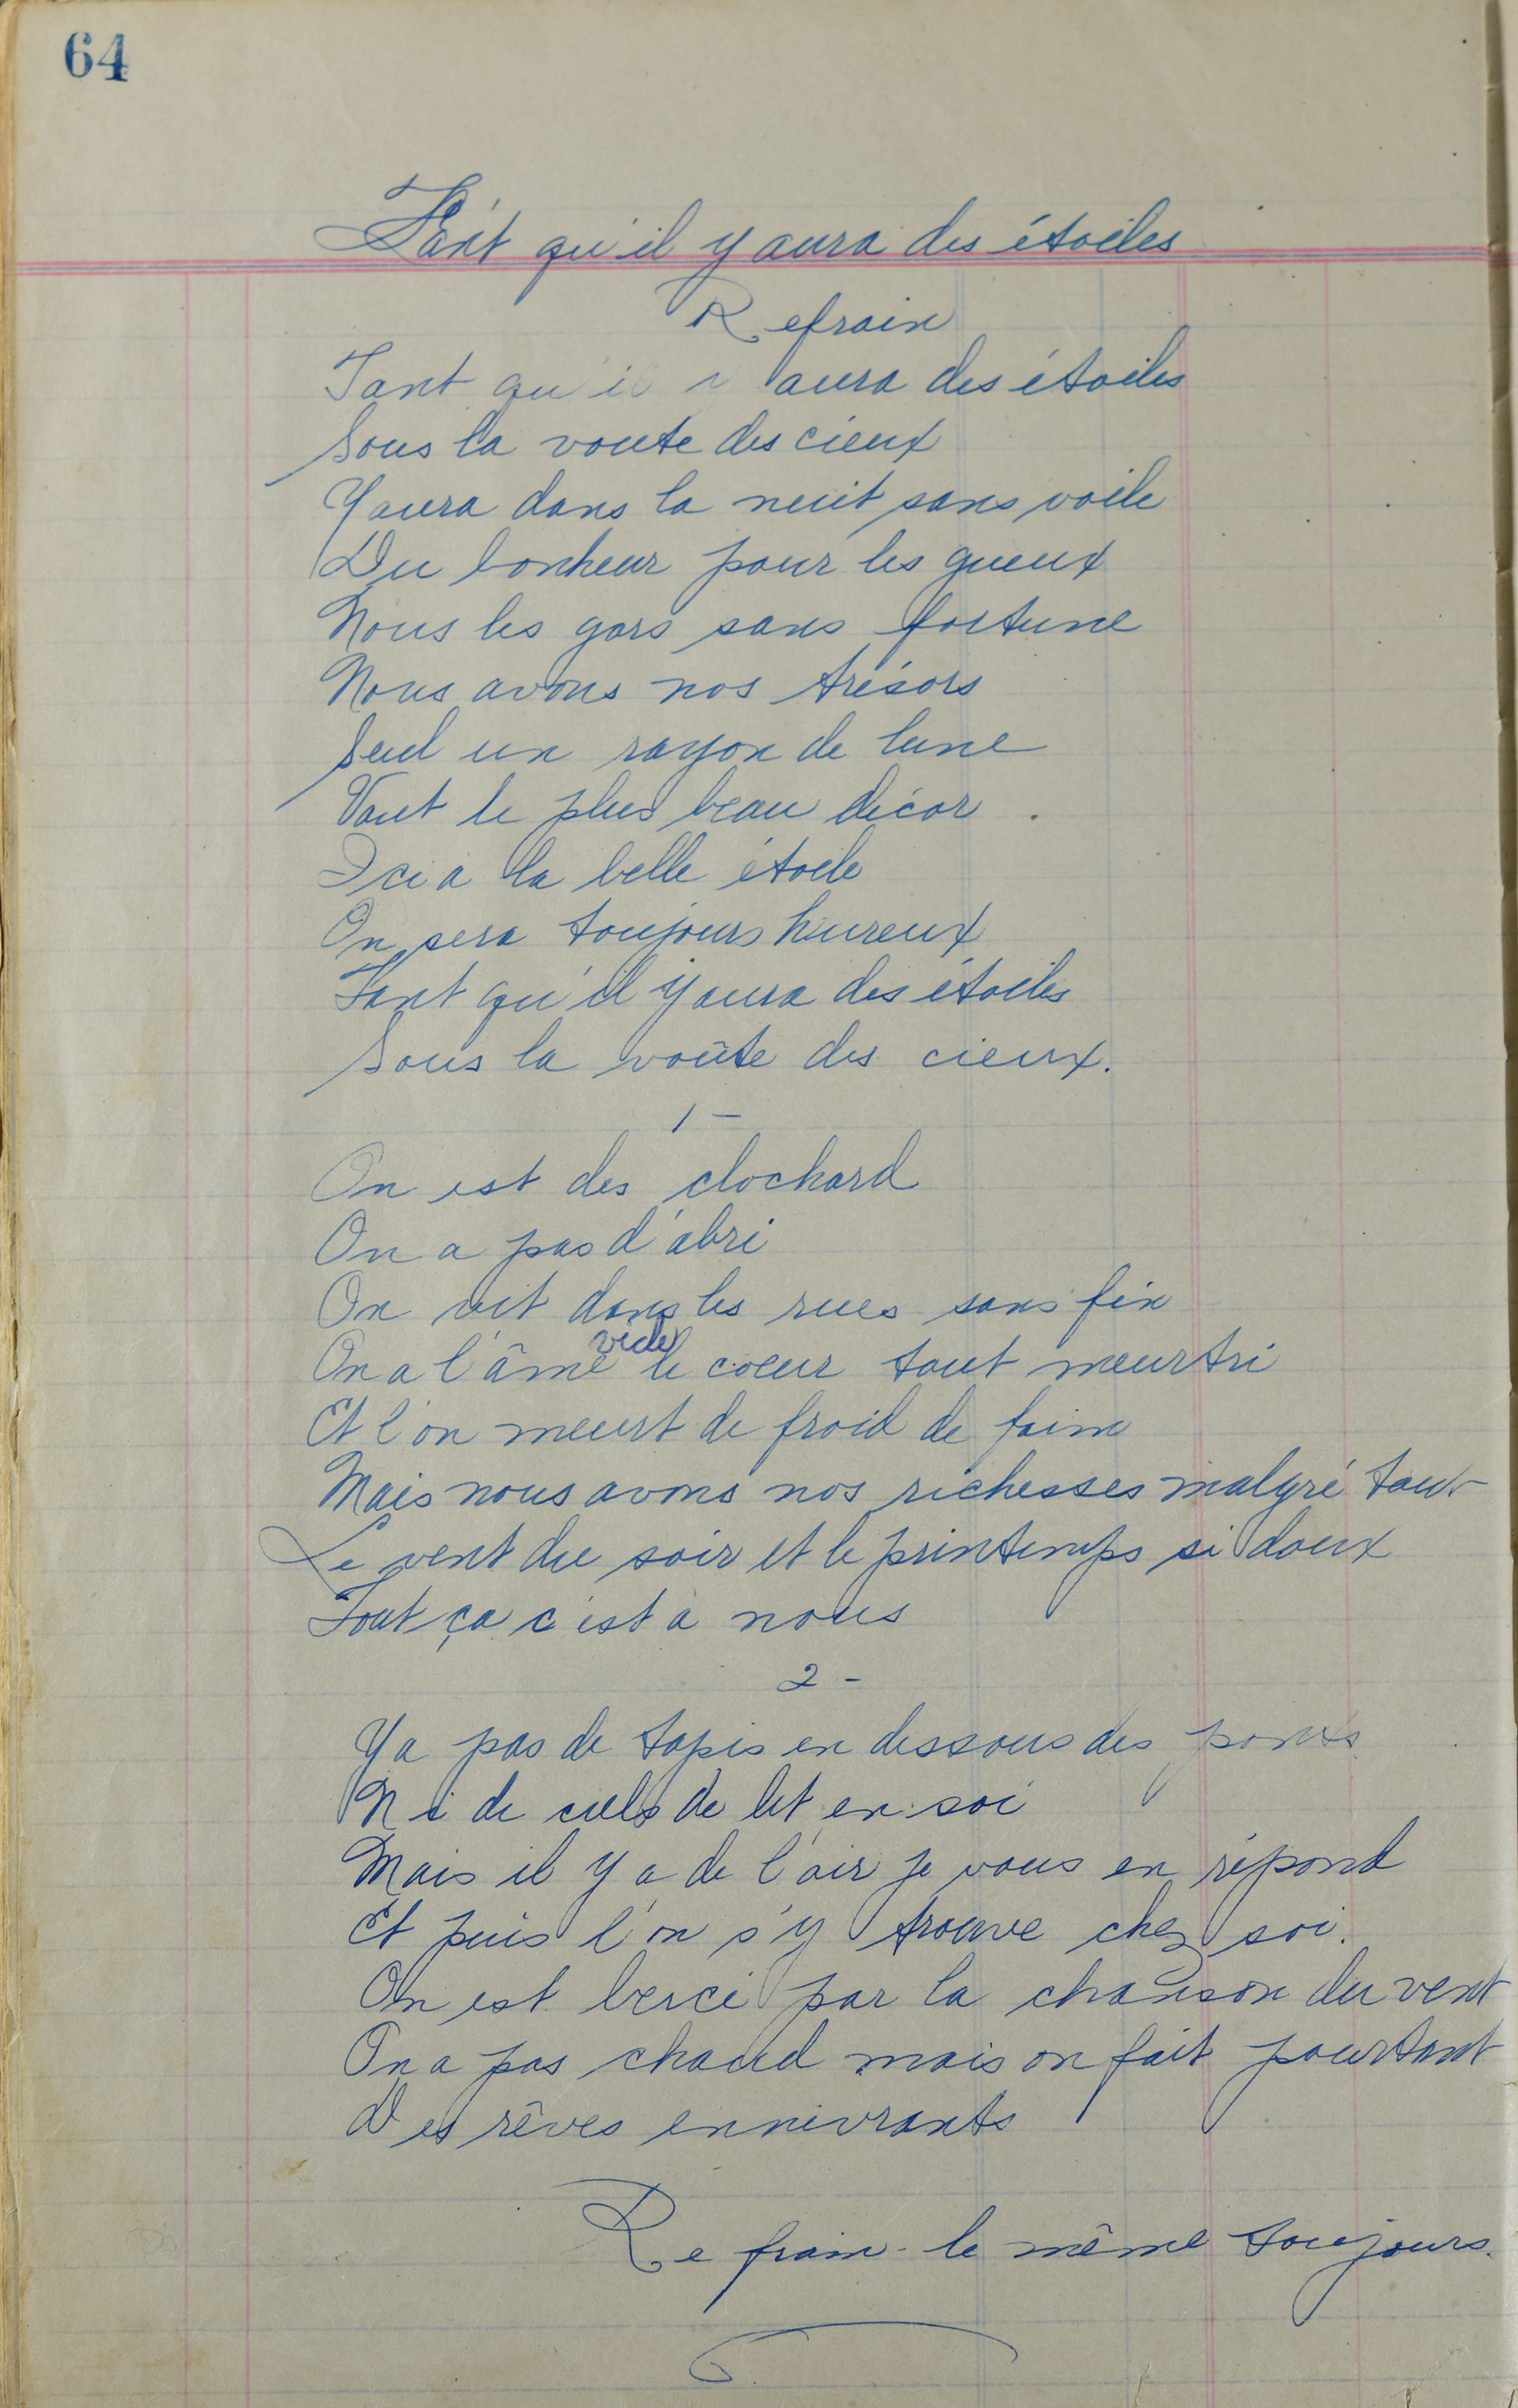 64
Tant qu'il y aura des étoiles
Refrain
Tant qu'il y aura des étoiles
Sous la voute des cieux
Y aura dans la nuit sans voile
Du bonheur pour les gueux
Nous les gars sans fortune
Nous avons nos trésors
Seul un rayon de lune
Vaut le plus beau décor
Ici a la belle étoile
On sera toujours heureux
Tant qu'il y aura des étoiles
Sous la voûte des cieux.
1 -
On est des clochard
On a pas d'abri
On vit dans les rues sans fin
On a l'âme vide le coeur tout meurtri
Et l'on meurt de froid de faim
Mais nous avons nos richesses malgré tout
Le vent du soir et le printemps si doux
Tout ça c'est à nous
2 -
Y a pas de tapis en dessous des ponts
Ni de ciels de lit en soi
Mais il y a de l'air je vous en répond
Et puis l'on s'y trouve chez soi.
On est bercé par la chanson du vent
On a pas chaud mais on fait pourtant
Des rêves ennivrants
Refrain - le même toujours.